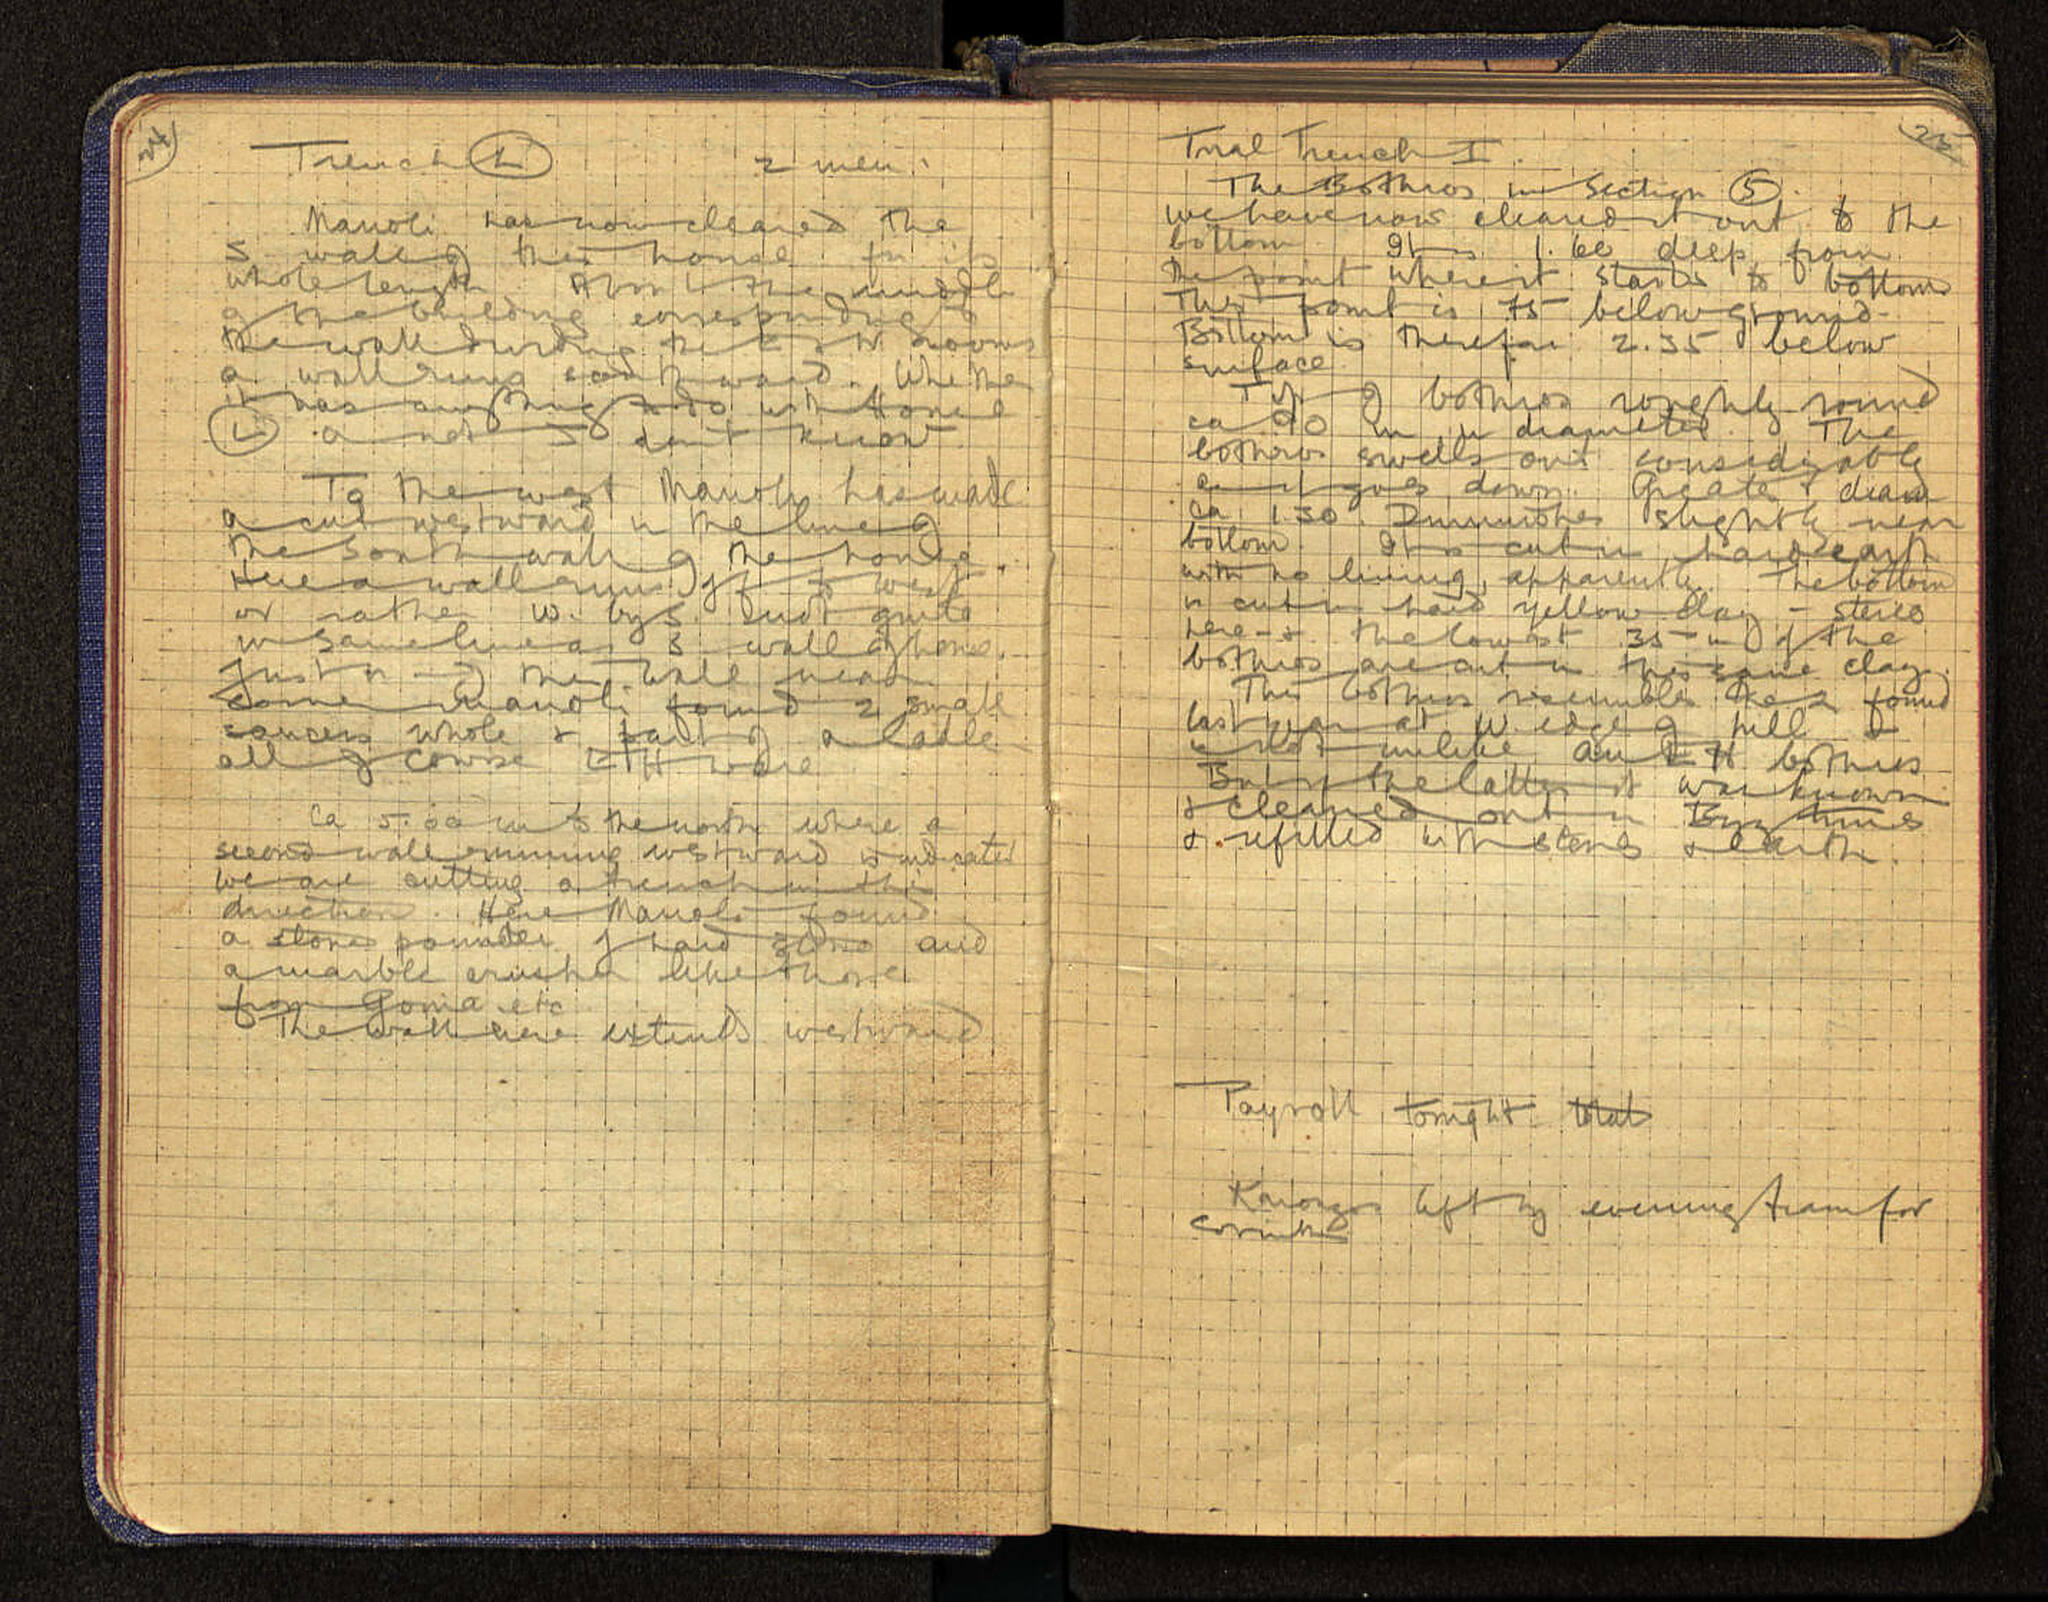 24
Trench L 2 men.
Manoli has now cleared the
S. wall of this house for its
whole length. About the middle
of the building corresponding to
the wall dividing the E & W rooms
a wall runs southward. Whether
it has anything to do with House
L or not I don't know.
To the west Manoli has made
a cut westward in the line of
the South wall of the house.
Here a wall runs off to west
or rather W. by S. not quite
in same line as S wall of house.
Just n of the wall near
corner Manoli found 2 small
saucers whole & part of a ladle
all of coarse EH ware
Ca 5.00 m to the north where a
second wall running westward is indicated
we are cutting a trench in this
direction. Here Manoli found
a stone pounder of hard stone and
a marble crusher like those
from Gonia etc
The wall here extends westward
25
Trial Trench I.
The Bothros in Section 5.
we have now cleared it out to the
bottom. It is 1.60 deep from
the point where it starts to bottom
This point is 75 below ground.
Bottom is therefore 2.35 below
surface.
Top of bothros roughly round
ca 90 m in diameter. The
bothros swells out considerably
as it goes down. Greatest diam
ca 1.30. Diminishes slightly near
bottom. It is cut in hard earth
with no lining, apparently. The bottom
is cut in hard yellow clay - stereo
here - & the lowest 35 m of the
bothros are cut in this same clay.
This bothros resembles the 2 found
last year at W. edge of hill &
is not unlike an EH bothros
But if the latter it was known
& cleaned out in Byz times
& refilled with stones & earth.
Payroll tonight total
left by evening train for
Corinth